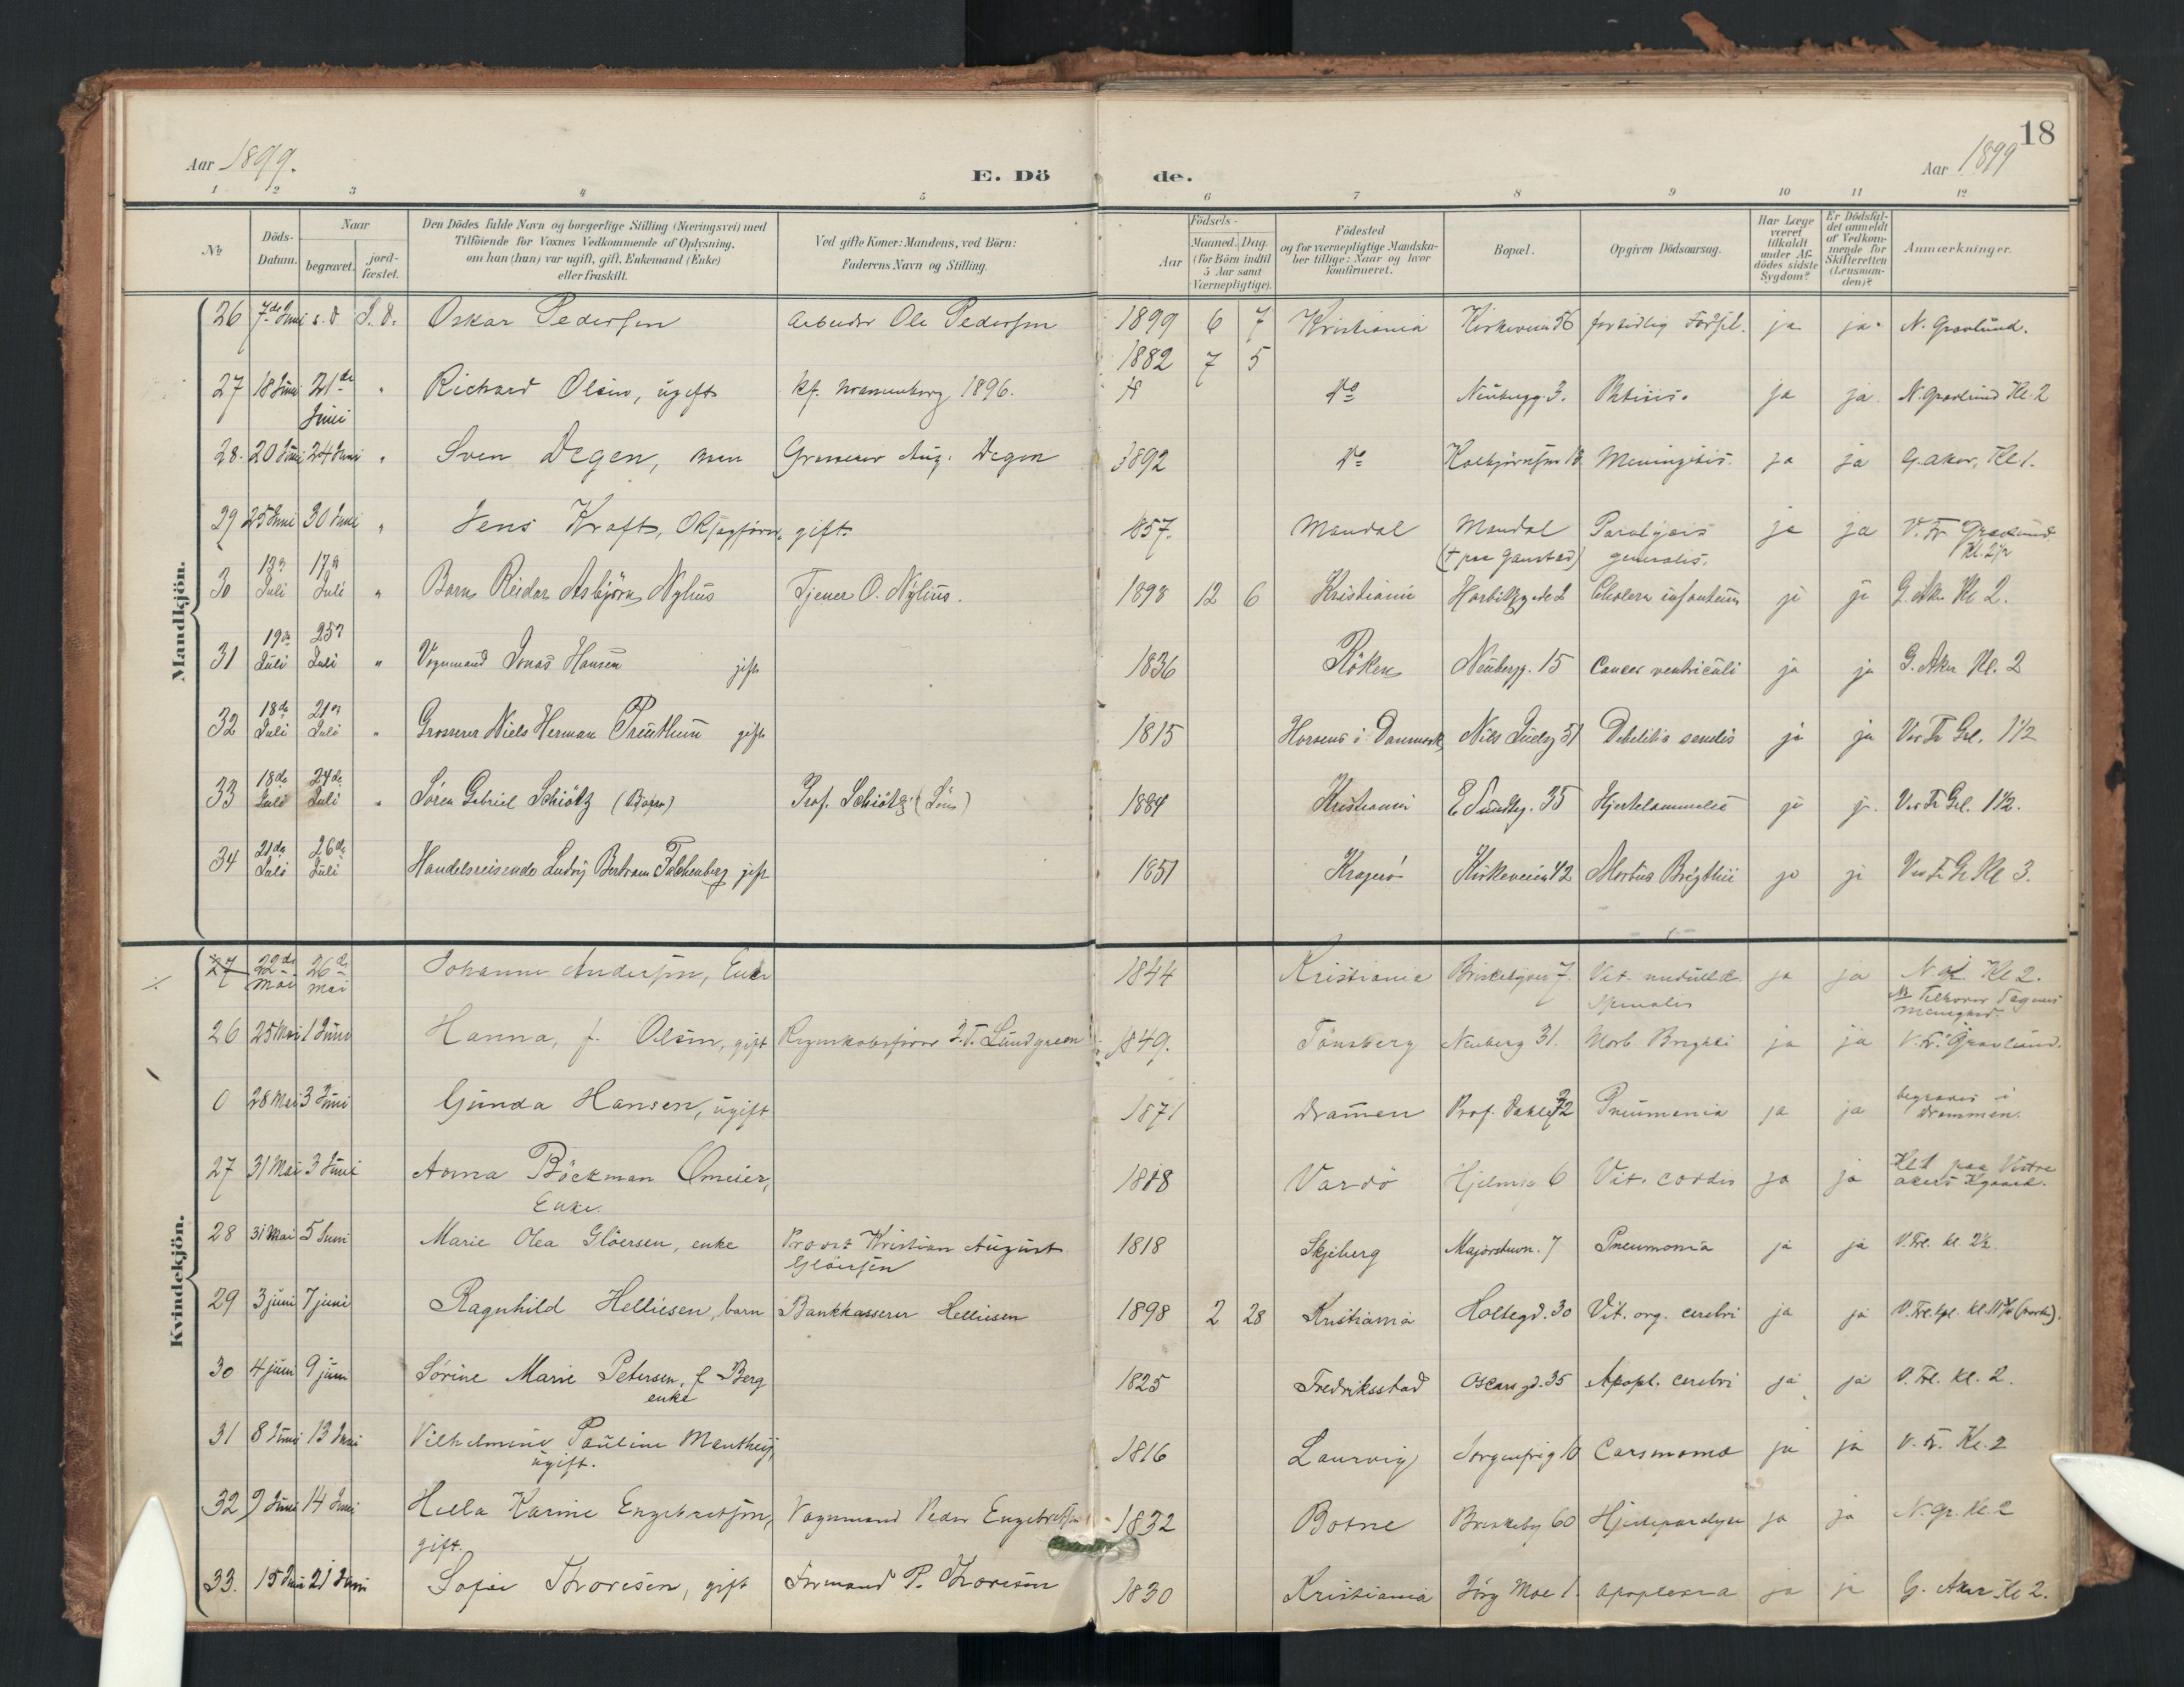 18
Aar 1899.
E. Döde.
Aar 1899
1 2 3 4 5 6 7 8 9 10 11 12
№
Döds-Datum.
Naar
begravet.
jord-fæstet.
Den Dödes fulde Navn og borgerlige Stilling (Næringsvei) med
Tilföiende for Voxnes Vedkommende af Oplysning,
om han (hun) var ugift, gift, Enkemand (Enke)
eller fraskilt.
Ved gifte Koner: Mandens, ved Börn:
Faderens Navn og Stilling.
Födsels-
Aar
Maaned. Dag.
(for Börn indtil
5 Aar samt
Værnepligtige).
Födested
og for værnepligtige Mandska-
ber tillige: Naar og hvor
konfirmeret.
Bopæl.
Opgiven Dödsaarsag.
Har Læge
været
tilkaldt
under Af-
dödes sidste
Sygdom?
Er Dödsfal-
det anmeldt
af Vedkom-
mende for
Skifteretten
(Lensman-
den)?
Anmærkninger.
Mandkjön.
26 7de Juni s. d. S. D. Oskar Pedersen Arbeider Ole Pedersen 1899 6 7 Kristiania Kirkeveien 56 for tidlig Fødsl. ja ja. N. Gravlund.
1882 7 5
27 18 Juni 21de Juni " Richard Olsen, ugift kf. 1896. do Neubergg. 3. Phtisis. ja ja. N. Gravlund Kl. 2
28. 20 Juni 24 Juni " Sven Degen, barn Grosserer Aug. Degen 1892 do Meningitis. ja ja G. Aker, Kl 1.
29 25 Juni 30 Juni " Jens Kraft, gift. 1857. Mandal Mandal Paralysis ja ja V. Fr Gravlund
(+ paa Gaustad) generalis. Kl. 2½
30 13de Juli 17de Juli " Barn Reidar Asbjörn Nyhus Tjener O. Nyhus. 1898 12 6 Kristiania Cholera infantum ja ja G. Aker Kl 2.
31 19de Juli 25de Juli " Vognmand Jonas Hansen gift 1836 Röken Neubergg. 15 Cancer ventriculi ja ja G. Aker Kl. 2
32 18de Juli 21de Juli " Grosserer Niels Herman gift 1815 Horsens i Danmark Nils Juelsg 51 Debilitis senilis ja ja Vor Fr Grl. 1½
33 18de Juli 24de Juli " Sören Gabriel Schiötz (Barn) Prof. Schiötz (Sön) 1884 Kristiania E Sundtsg. 35 Hjertelammelse ja ja. Vor Fr Grl. 1½.
34 21de Juli 26de Juli Handelsreisende Ludvig Bertram Falchenberg gift 1851 Kragerö Kirkeveien 42 Morbus Brigthii ja ja Vor Fr Gr Kl 3.
Kvindekjön.
27 22de Mai 26de Mai Johanne Andersen, Enke 1844 Kristiania Vit. medullæ ja ja Kl 2.
spinalis
26 25 Mai 1 Juni Hanna, f. Olsen, gift Regnskabsfører J. T. Lundgreen 1849. Tönsberg Neuberg 31. Morb Brighti ja ja V. Fr. Gravlund.
0 28 Mai 3 Juni Gunda Hansen, ugift 1871 Dramen Prof. Dahlsg 32 Pneumonia ja ja begraves i
Drammen.
27 31 Mai 3 Juni Anna Böckman Omeier, 1818 Vardö Hjelmsg 6 Vit. cordis ja ja Kl 1 paa Vestre
Enke. akers Kgaard.
28 31 Mai 5 Juni Marie Olea Glöersen, enke Provst Kristian August 1818 Skjeberg Majorstuen. 7 Pneumonia ja ja V. Frl. kl. 2½.
Glöersen
29 3 juni 7 juni Ragnhild Helliesen, barn Bankkasserer Helliesen 1898 2 28 Kristiania Holtegd. 30 Vit. org. cerebri ja ja
30 4 juni 9 juni Sörine Marie Petersen, f. Berg 1825 Fredriksstad Oscars gd. 35 Apopl. cerebri ja ja V. Frl. kl. 2.
enke
31 8 Juni 13 Juni Vilhelmine Pauline Manthey, 1816 Laurvig Sorgenfrig 10 ja ja V. Fr. Kl. 2
ugift.
32 9 Juni 14 Juni Hella Karine Engebretsen, Vognmand Peder Engebretsen 1832 Botne Briskeby 60 Hjerteparalyse ja ja N. Gr. Kl. 2
gift.
33. 15 Juni 21 Juni Sofie Thoresen, gift Formand P. Thoresen 1830 Kristiania Jörg Moe 1. Apoplexia ja ja G. Aker Kl 2.